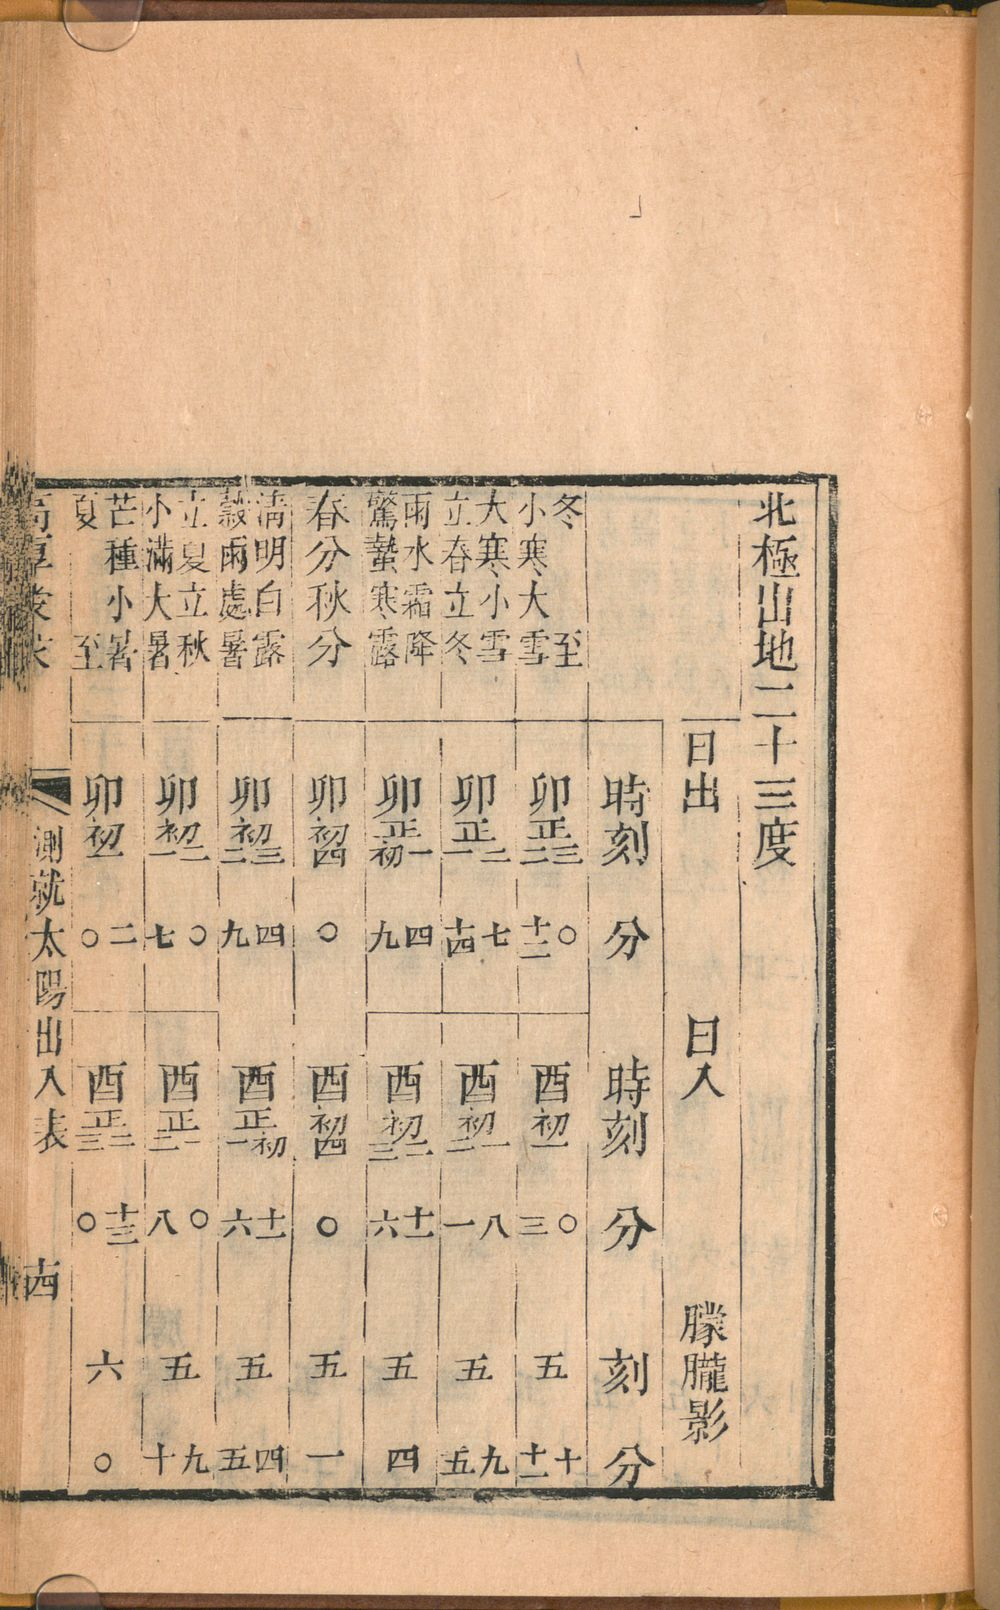 北極出地二十三度
日出 日入 朦朧影
時刻 分 時刻 分 刻 分
冬至 卯正三 〇 酉初一 〇 五 十
小寒大雪 卯正二 十二 酉初一 三 五 十一
大寒小雪 卯正二 七 酉初一 八 五 九
立春立冬 卯正一 十四 酉初二 一 五 五
雨水霜降 卯正一 四 酉初二 十一 五 四
驚蟄寒露 卯正初 九 酉初三 六 五 四
春分秋分 卯初四 〇 酉初四 〇 五 一
清明白露 卯初三 四 酉正初 十一 五 四
穀雨處暑 卯初二 九 酉正一 六 五 五
立夏立秋 卯初二 〇 酉正一 〇 五 九
小滿大暑 卯初一 七 酉正二 八 五 十
芒種小暑 卯初一 二 酉正二 十三 六 〇
夏至 卯初一 〇 酉正三 〇 六 〇
測就太陽出入表